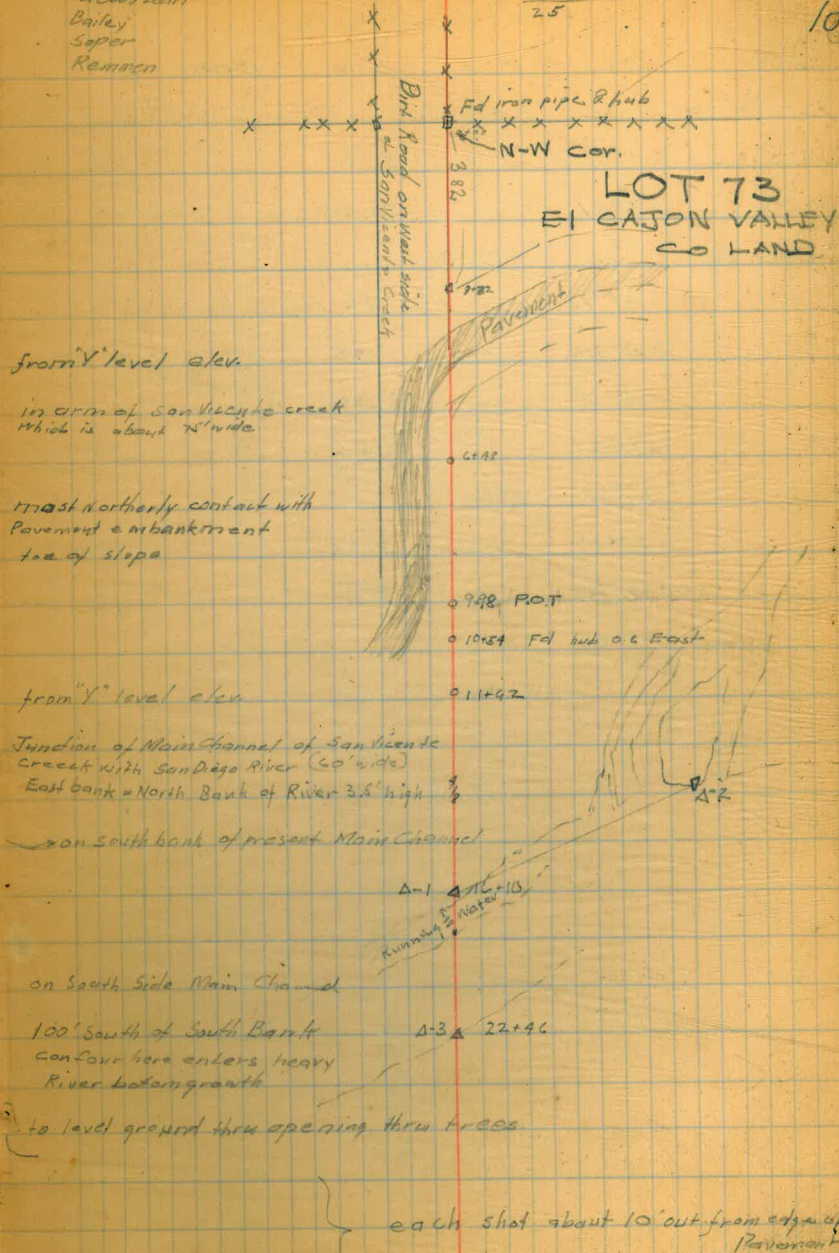 25
10
Bailey
Soper
Remmen
Fd iron pipe & hub
N-W Cor.
Dirt Road on West side
of San Vicente Creek
382
LOT 73
El CAJON VALLEY
Co LAND
3+82
Pavement
from "Y" level elev.
in arm of San Vicente creek
which is about 75' wide
6+98
most Northerly contact with
Pavement embankment
toe of slope
9+98 P.O.T
10+54 Fd hub o.c East
from "Y" level elev.
11+92
Junction of Main Channel of San Vicente
Creeck with San Diego River (60' wide)
East bank = North Bank of River 3.5' high
Δ-2
on south bank of present Main Channel
Δ-1
Running Water
on South Side Main Channel
100' South of South Bank
Δ-3 22+46
contour here enters heavy
River bottom growth
to level ground thru opening thru trees
each shot about 10' out from edge of
Pavement